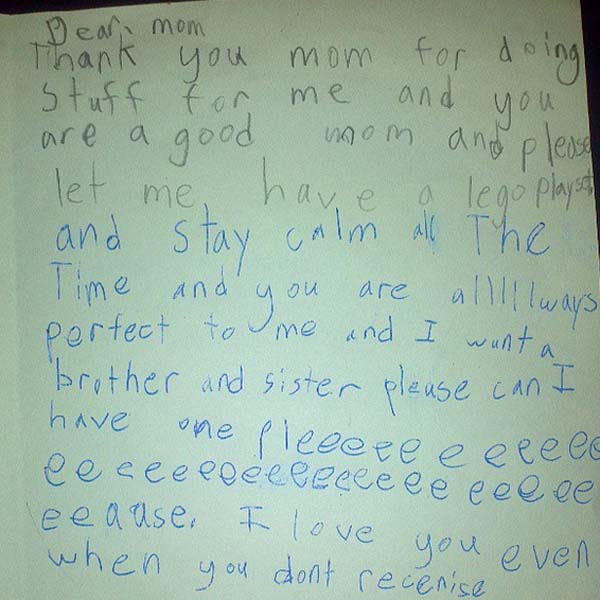 Dear mom
Thank you mom for doing
stuff for me and you
are a good mom and please
let me have a lego playset
and stay calm all The
Time and you are alllllways
perfect to me and I want a
brother and sister please can I
have one pleeeee e eeeee
ee eeeeeeeeeeeeeee eeeee
eeause. I love you even
when you dont recenise